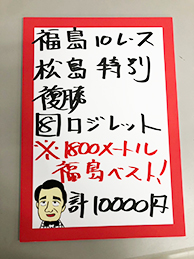 福島10レース
松島特別
複勝
⑧ロジレット
※1800メートル
福島ベスト!
計10000円